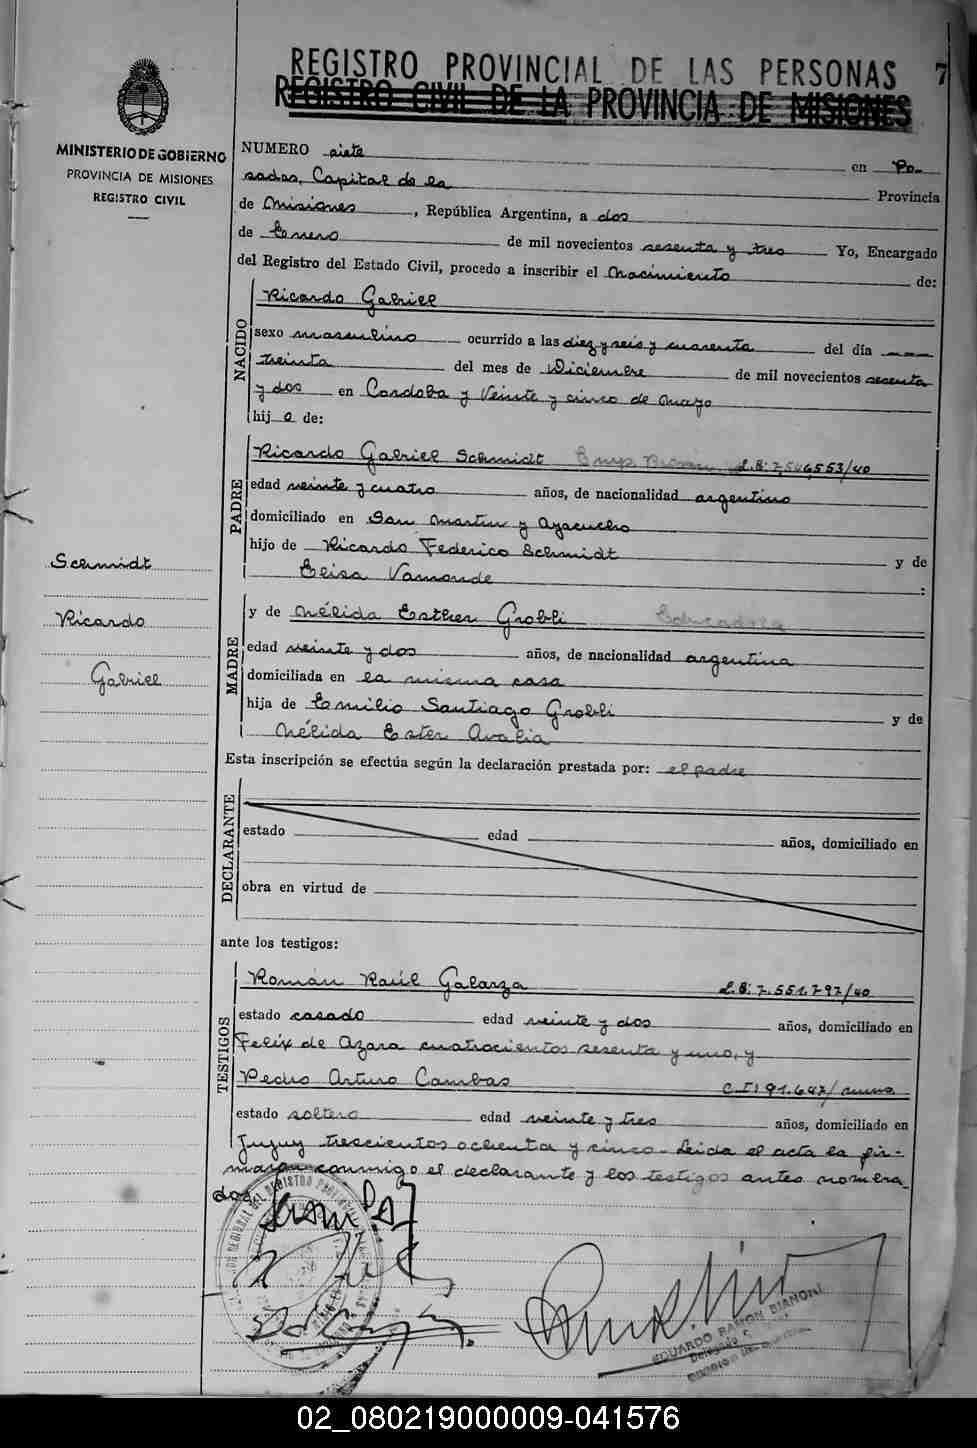 REGISTRO PROVINCIAL DE LAS PERSONAS 7
REGISTRO CIVIL DE LA PROVINCIA DE MISIONES
MINISTERIO DE GOBIERNO
PROVINCIA DE MISIONES
REGISTRO CIVIL
NUMERO siete en Po-
sadas, Capital de la Provincia
de Misiones, República Argentina, a dos
de Enero de mil novecientos sesenta y tres Yo, Encargado
del Registro del Estado Civil, procedo a inscribir el Nacimiento de:
NACIDO
Ricardo Gabriel
sexo masculino ocurrido a las diez y seis y cuarenta del día
treinta del mes de Diciembre de mil novecientos sesenta
y dos en Cordoba y Veinte y cinco de Mayo
hij o de:
PADRE
Ricardo Gabriel Schmidt Emp. L.E: 7.546.553/40
edad veinte y cuatro años, de nacionalidad argentino
domiciliado en San Martin y Ayacucho
hijo de Ricardo Federico Schmidt y de
Elisa Vamonde :
Schmidt
Ricardo
Gabriel
MADRE
y de Nélida Esther Grobli Educadora
edad veinte y dos años, de nacionalidad argentina
domiciliada en la misma casa
hija de Emilio Santiago Grobli y de
Nélida Ester Avalia
Esta inscripción se efectúa según la declaración prestada por: el padre
DECLARANTE
estado edad años, domiciliado en
obra en virtud de
ante los testigos:
TESTIGOS
Román Raúl Galarza L.E: 7.551.797/40
estado casado edad veinte y dos años, domiciliado en
Felix de Azara cuatrocientos sesenta y uno, y
Pedro Arturo Cambas C.I: 91.647/
estado soltero edad veinte y tres años, domiciliado en
Jujuy trescientos ochenta y cinco. Leida el acta la fir-
maron conmigo el declarante y los testigos antes nomera
dos
EDUARDO RAMON BIANCHI
02_080219000009-041576